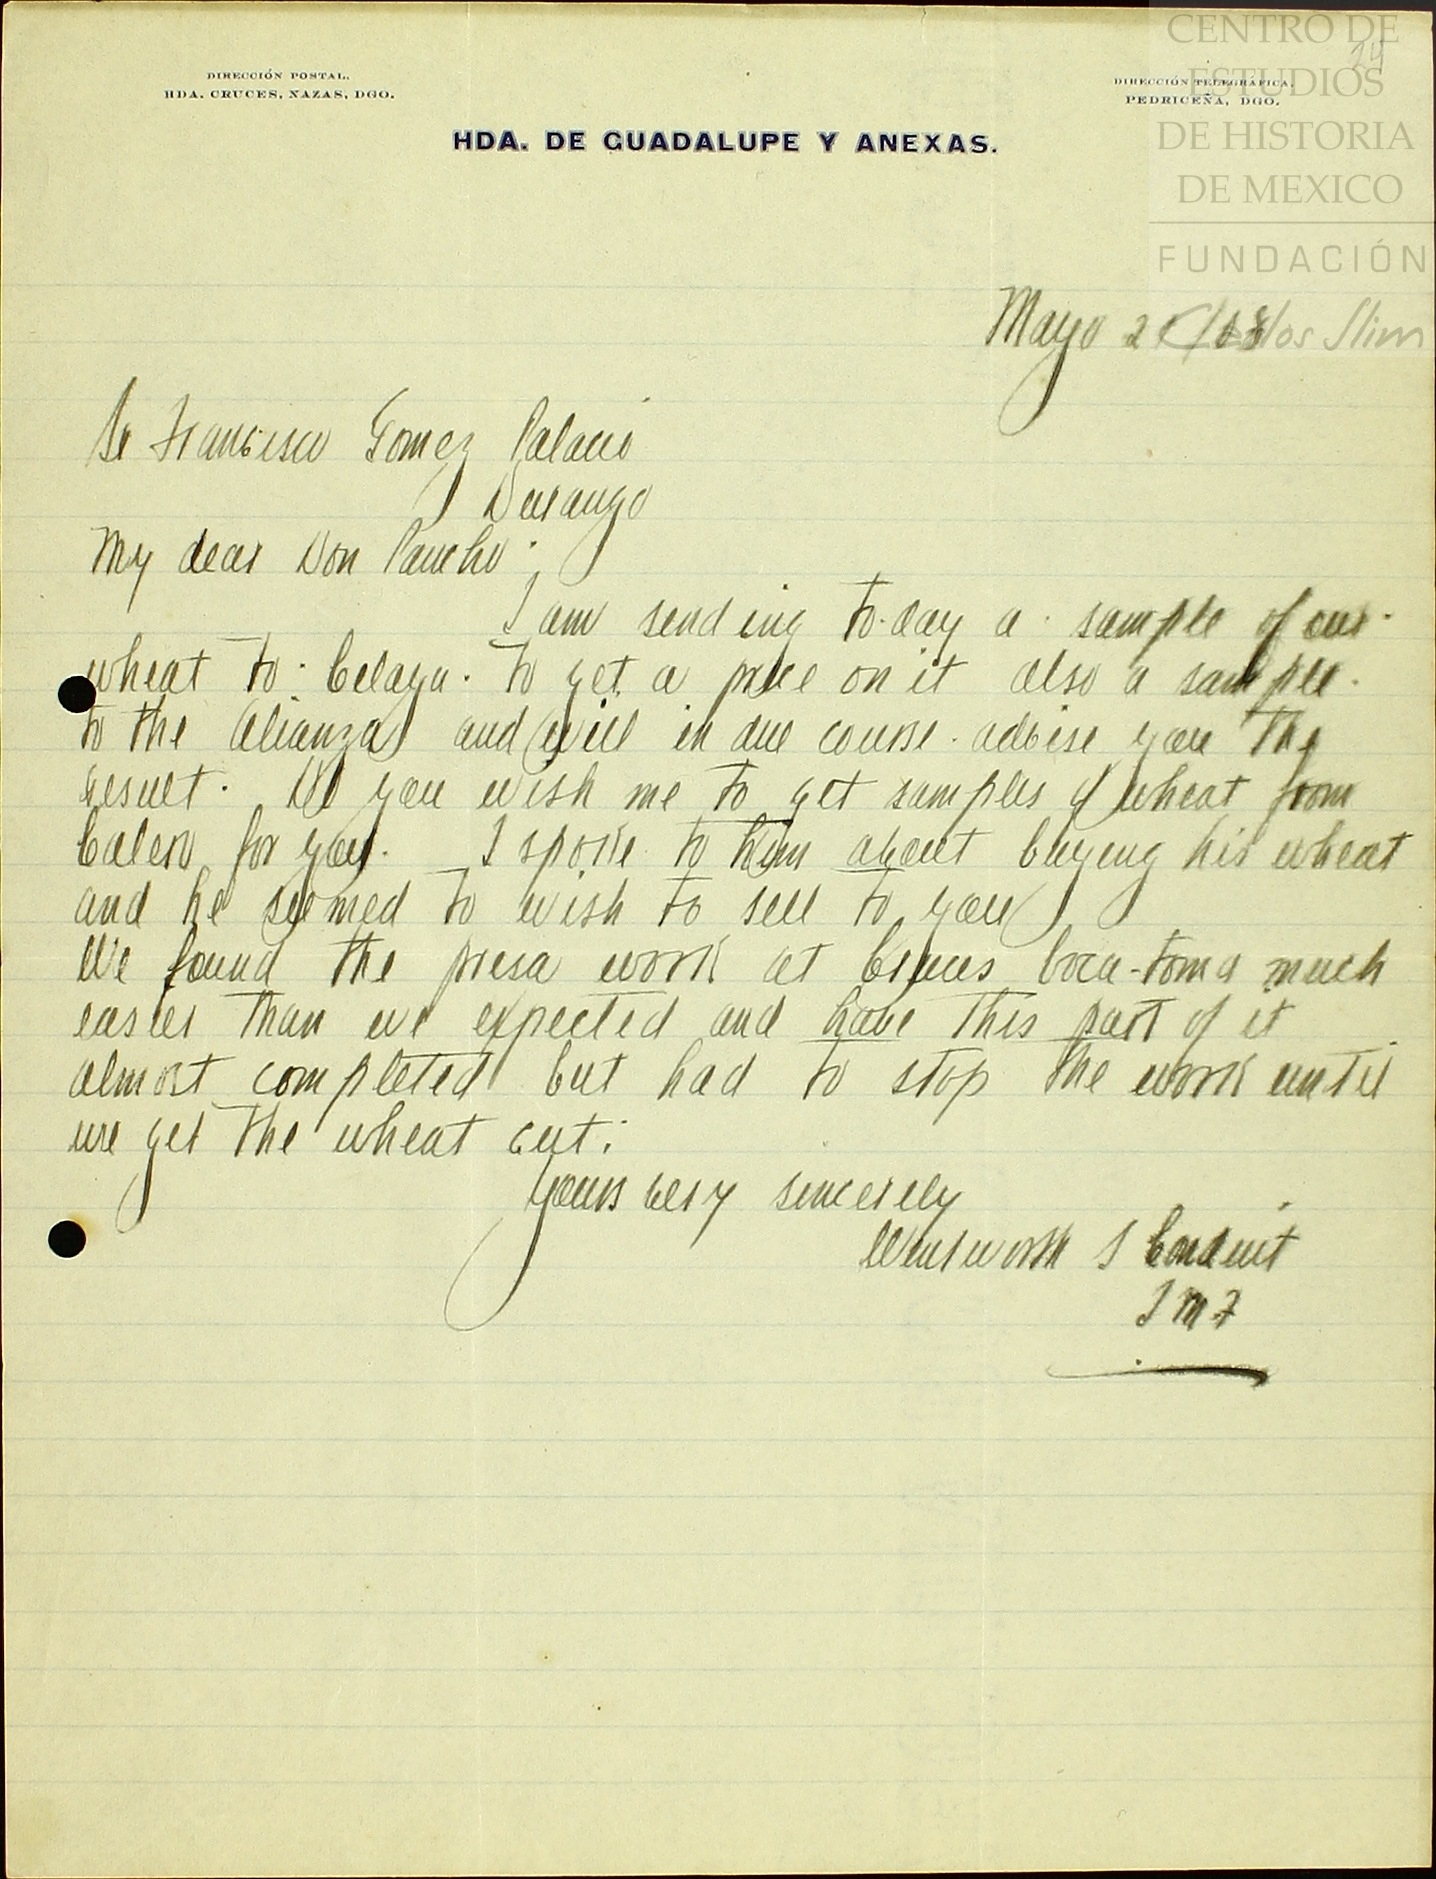 CENTRO DE
ESTUDIOS
DE HISTORIA
DE MEXICO
FUNDACIÓN
Carlos Slim
24
DIRECCIÓN POSTAL.
HDA. CRUCES, NAZAS, DGO.
DIRECCIÓN TELEGRÁFICA.
PEDRICEÑA, DGO.
HDA. DE GUADALUPE Y ANEXAS.
Mayo
Sr Francisco Gomez Palacio
Durango
My dear Don Pancho:
I am sending to-day a sample of our
wheat to Celaya to get a price on it also a sample
to the Alianza and will in due course advise you the
result. Do you wish me to get samples of wheat from
Calero for you. I spoke to him about buying his wheat
and he seemed to wish to sell to you
We found the presa work at Cruces boca-toma much
easier than we expected and have this part of it
almost completed but had to stop the work until
we get the wheat cut.
Yours very sincerely
Wentworth S Conduit